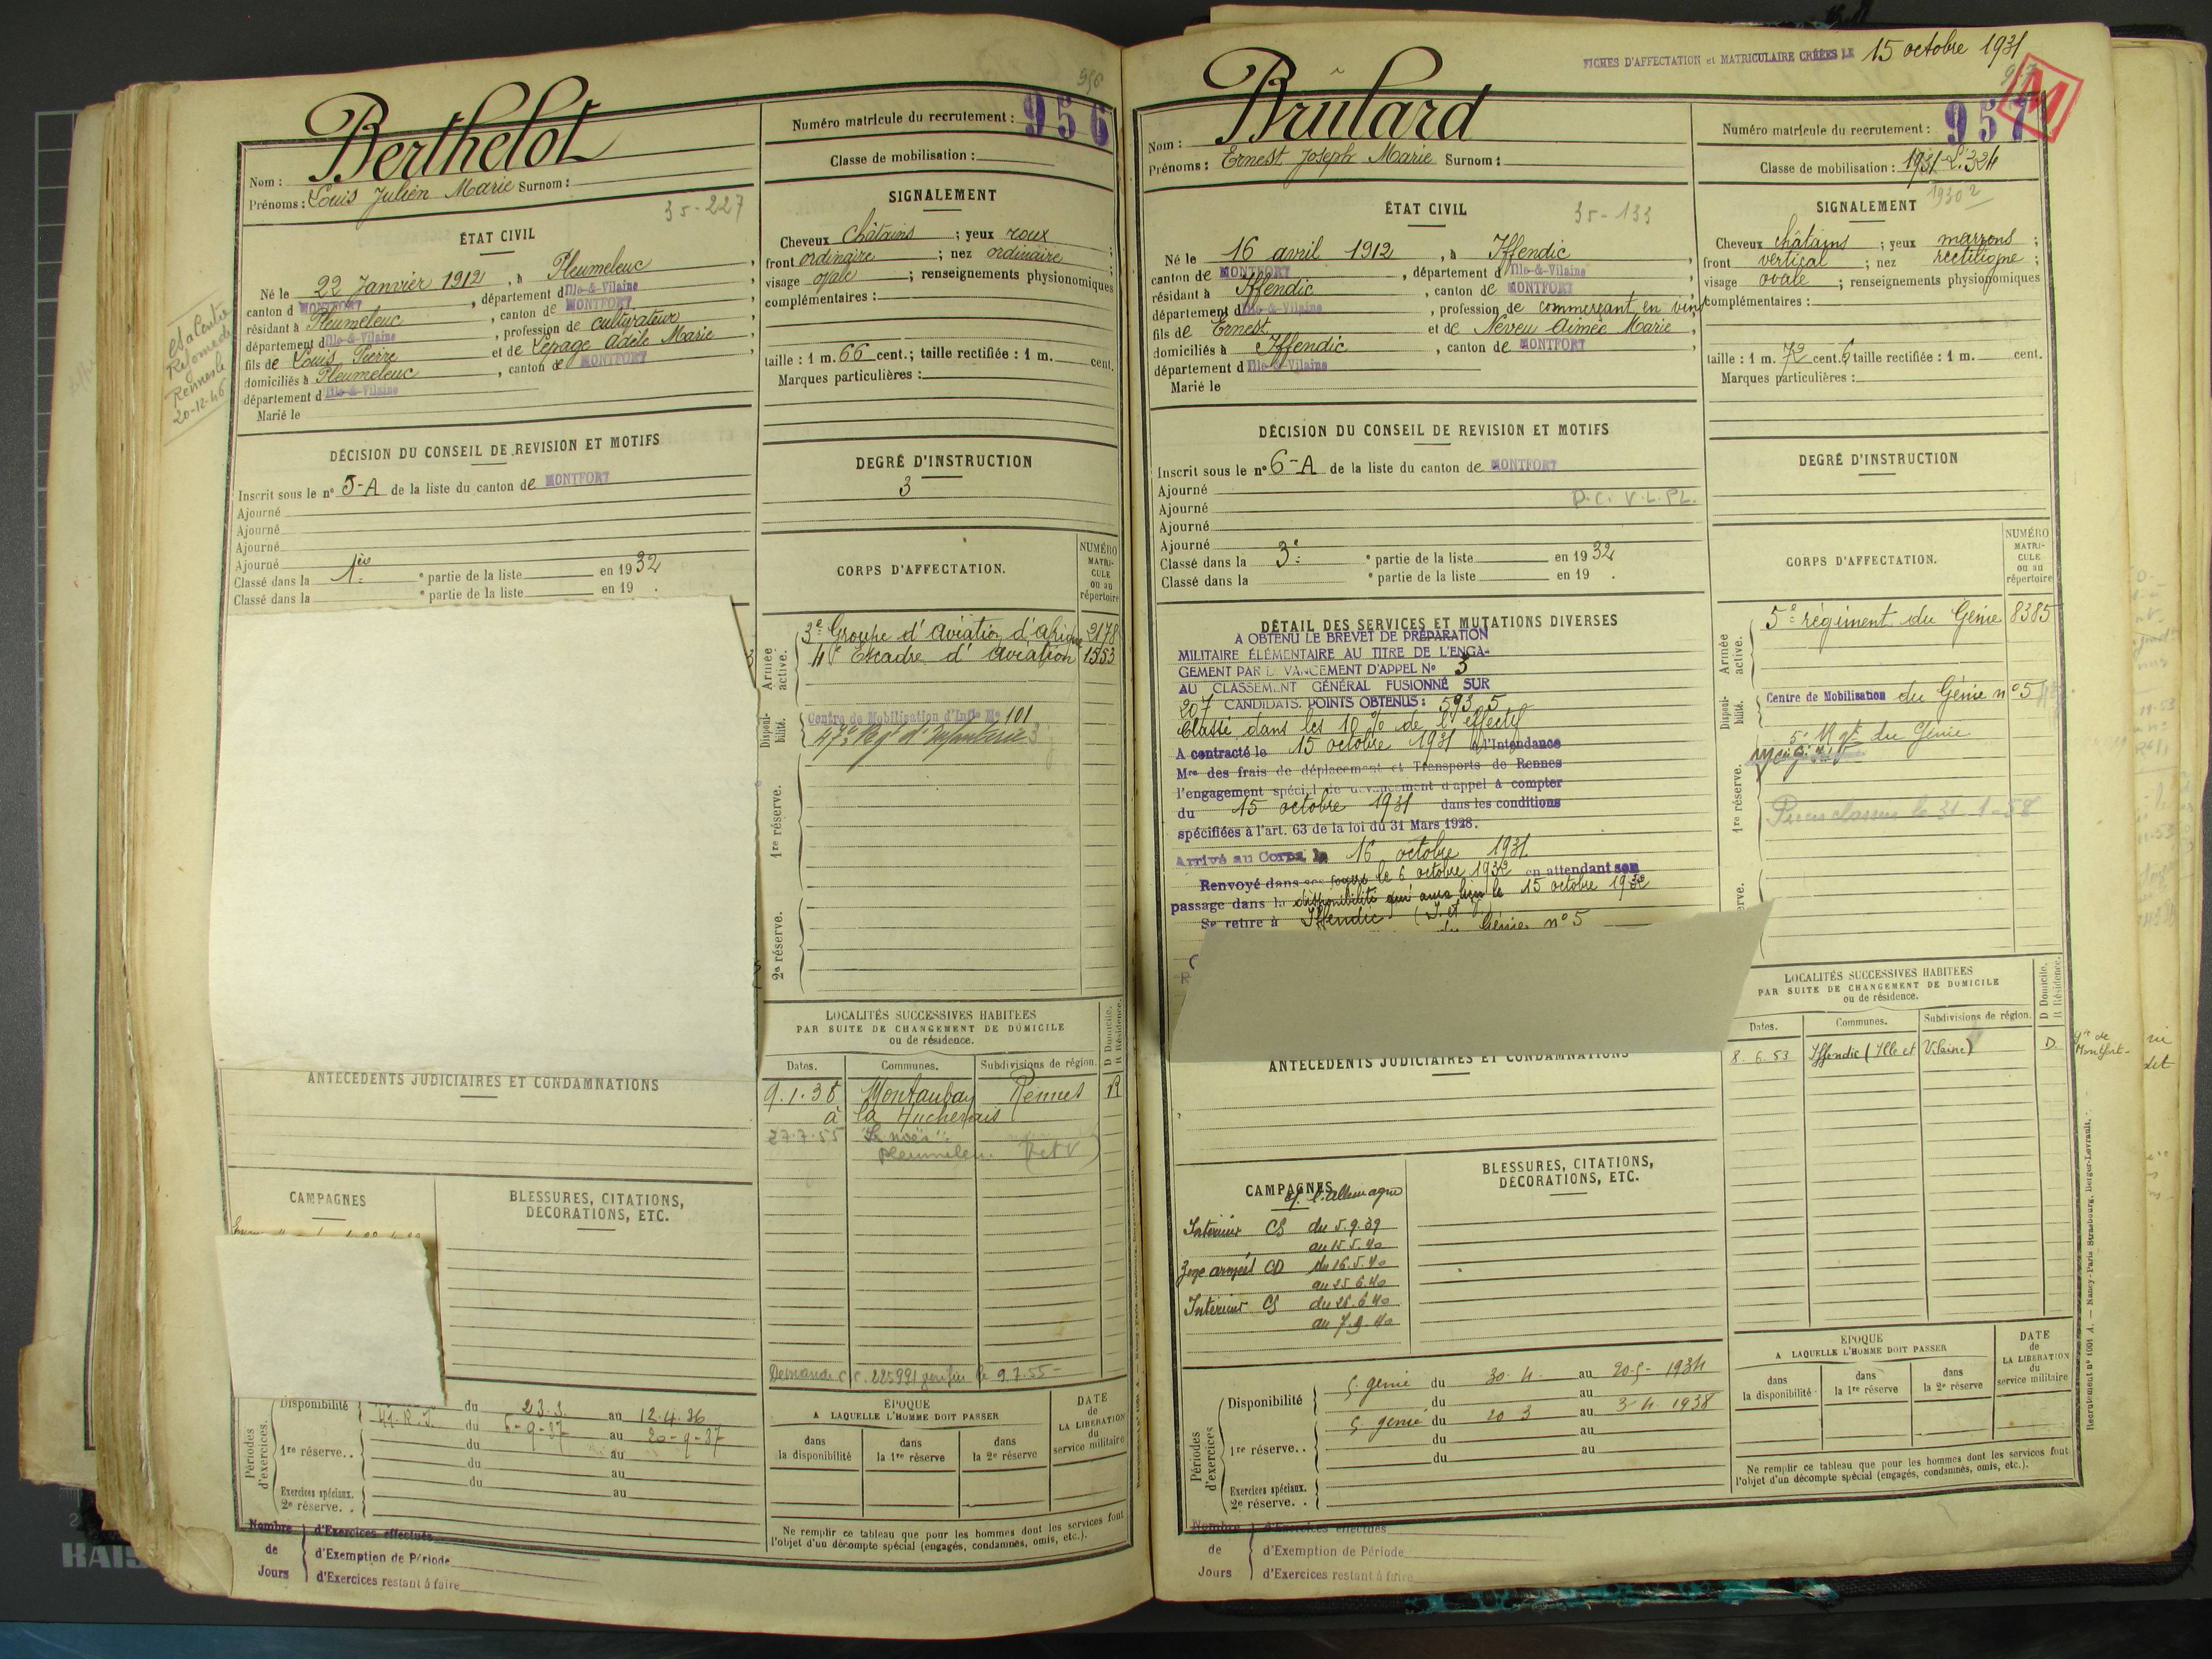 956
Berthelot
Nom :
Prénoms : Louis Julien Marie Surnom :
35-227
ÉTAT CIVIL
Né le 22 Janvier 1912, à Pleumeleuc,
canton d MONTFORT, département d Ille-&-Vilaine
résidant à Pleumeleuc, canton de MONTFORT
département d Ille-&-Vilaine, profession de cultivateur
fils de Louis Pierre et de Lepage Adèle Marie
domiciliés à Pleumeleuc, canton de MONTFORT
département d Ille-&-Vilaine
Marié le
Rennes le
20-12-46
DÉCISION DU CONSEIL DE REVISION ET MOTIFS
Inscrit sous le n° 5-A de la liste du canton de MONTFORT
Ajourné
Ajourné
Ajourné
Ajourné
Classé dans la 1ère e partie de la liste en 1932
Classé dans la e partie de la liste en 19 .
ANTÉCÉDENTS JUDICIAIRES ET CONDAMNATIONS
CAMPAGNES
BLESSURES, CITATIONS,
DÉCORATIONS, ETC.
Périodes d'exercices.
Disponibilité du 23.3 au 12.4.36
du 6-9-37 au 20-9-37
1re réserve. . du au
du au
du au
Exercices spéciaux.
2e réserve. .
Nombre de Jours
d'Exercices effectués
d'Exemption de Période
d'Exercices restant à faire
Numéro matricule du recrutement : 956
Classe de mobilisation :
SIGNALEMENT
Cheveux châtains ; yeux roux ;
front ordinaire ; nez ordinaire ;
visage ovale ; renseignements physionomiques
complémentaires :
taille : 1 m. 66 cent.; taille rectifiée : 1 m. cent.
Marques particulières :
DEGRÉ D'INSTRUCTION
3
CORPS D'AFFECTATION.
NUMÉRO MATRICULE ou au répertoire
Armée active.
3e Groupe d'aviation d'afrique 2178
4e Escadre d'aviation 1553
Disponibilité.
Centre de Mobilisation d'Infie No 101
47e Regt d'Infanterie
1re réserve.
2e réserve.
LOCALITÉS SUCCESSIVES HABITÉES
PAR SUITE DE CHANGEMENT DE DOMICILE
ou de résidence.
D Domicile.
R Résidence.
Dates. Communes. Subdivisions de région.
9.1.38 Montauban Rennes R
à la Hucherais
27.7.55
Demande C.C. 225991 le 9.7.55-
ÉPOQUE
A LAQUELLE L'HOMME DOIT PASSER
dans la disponibilité
dans la 1re réserve
dans la 2e réserve
DATE de LA LIBÉRATION du service militaire
Ne remplir ce tableau que pour les hommes dont les services font
l'objet d'un décompte spécial (engagés, condamnés, omis, etc.).
FICHES D'AFFECTATION et MATRICULAIRE CRÉÉES LE 15 octobre 1931
M
Brûlard
Nom :
Prénoms : Ernest Joseph Marie Surnom :
35-133
ÉTAT CIVIL
Né le 16 avril 1912, à Iffendic,
canton de MONTFORT, département d Ille-&-Vilaine
résidant à Iffendic, canton de MONTFORT
département d Ille-&-Vilaine, profession de commerçant en vins
fils de Ernest et de Neveu Aimée Marie,
domiciliés à Iffendic, canton de MONTFORT
département d Ille-&-Vilaine
Marié le
DÉCISION DU CONSEIL DE REVISION ET MOTIFS
Inscrit sous le n° 6-A de la liste du canton de MONTFORT
Ajourné
P.C. V.L. P.L.
Ajourné
Ajourné
Ajourné
Classé dans la 3e e partie de la liste en 1932
Classé dans la e partie de la liste en 19 .
DÉTAIL DES SERVICES ET MUTATIONS DIVERSES
A OBTENU LE BREVET DE PRÉPARATION
MILITAIRE ÉLÉMENTAIRE AU TITRE DE L'ENGA-
GEMENT PAR DEVANCEMENT D'APPEL No 3
AU CLASSEMENT GÉNÉRAL FUSIONNÉ SUR
207 CANDIDATS. POINTS OBTENUS : 593,5
Classé dans les 10 % de l'effectif
A contracté le 15 octobre 1931 à l'Intendance
Mre des frais de déplacement et Transports de Rennes
l'engagement spécial de devancement d'appel à compter
du 15 octobre 1931 dans les conditions
spécifiées à l'art. 63 de la loi du 31 Mars 1928.
Arrivé au Corps le 16 octobre 1931
Renvoyé dans ses foyers le 6 octobre 1932 en attendant son
passage dans la disponibilité qui aura lieu le 15 octobre 1932
Se retire à Iffendic (I. et V.
du Génie n° 5
ANTÉCÉDENTS JUDICIAIRES ET CONDAMNATIONS
CAMPAGNES
c/ l'allemagne
Intérieur CS du 5.9.39
au 15.5.40
Zone armées CD du 16.5.40
au 25.6.40
Intérieur CS du 26.6.40
au 7.9.40
BLESSURES, CITATIONS,
DÉCORATIONS, ETC.
Périodes d'exercices
Disponibilité 5 génie du 30.4. au 20-5-1934
du au
1re réserve. . 5 génie du 20 3 au 3-4 1938
du au
du au
Exercices spéciaux.
2e réserve. .
Nombre de Jours
d'Exercices effectués
d'Exemption de Période
d'Exercices restant à faire
Numéro matricule du recrutement : 957
Classe de mobilisation :
SIGNALEMENT
Cheveux châtains ; yeux marrons ;
front vertical ; nez rectiligne ;
visage ovale ; renseignements physionomiques
complémentaires :
taille : 1 m. 72 cent. 6 taille rectifiée : 1 m. cent.
Marques particulières :
DEGRÉ D'INSTRUCTION
CORPS D'AFFECTATION.
NUMÉRO MATRICULE ou au répertoire
Armée active.
5e régiment du Génie 8385
Disponibilité.
Centre de Mobilisation du Génie n° 5
5e Rgt du Génie
1re réserve.
LOCALITÉS SUCCESSIVES HABITÉES
PAR SUITE DE CHANGEMENT DE DOMICILE
ou de résidence.
D Domicile.
R Résidence.
Dates. Communes. Subdivisions de région.
8.6.53 Iffendic (Ille et Vilaine) D
Montfort-
ÉPOQUE
A LAQUELLE L'HOMME DOIT PASSER
dans la disponibilité
dans la 1re réserve
dans la 2e réserve
DATE de LA LIBÉRATION du service militaire
Ne remplir ce tableau que pour les hommes dont les services font
l'objet d'un décompte spécial (engagés, condamnés, omis, etc.).
Recrutement n° 1001 A. — Nancy-Paris Strasbourg, Berger-Levrault.